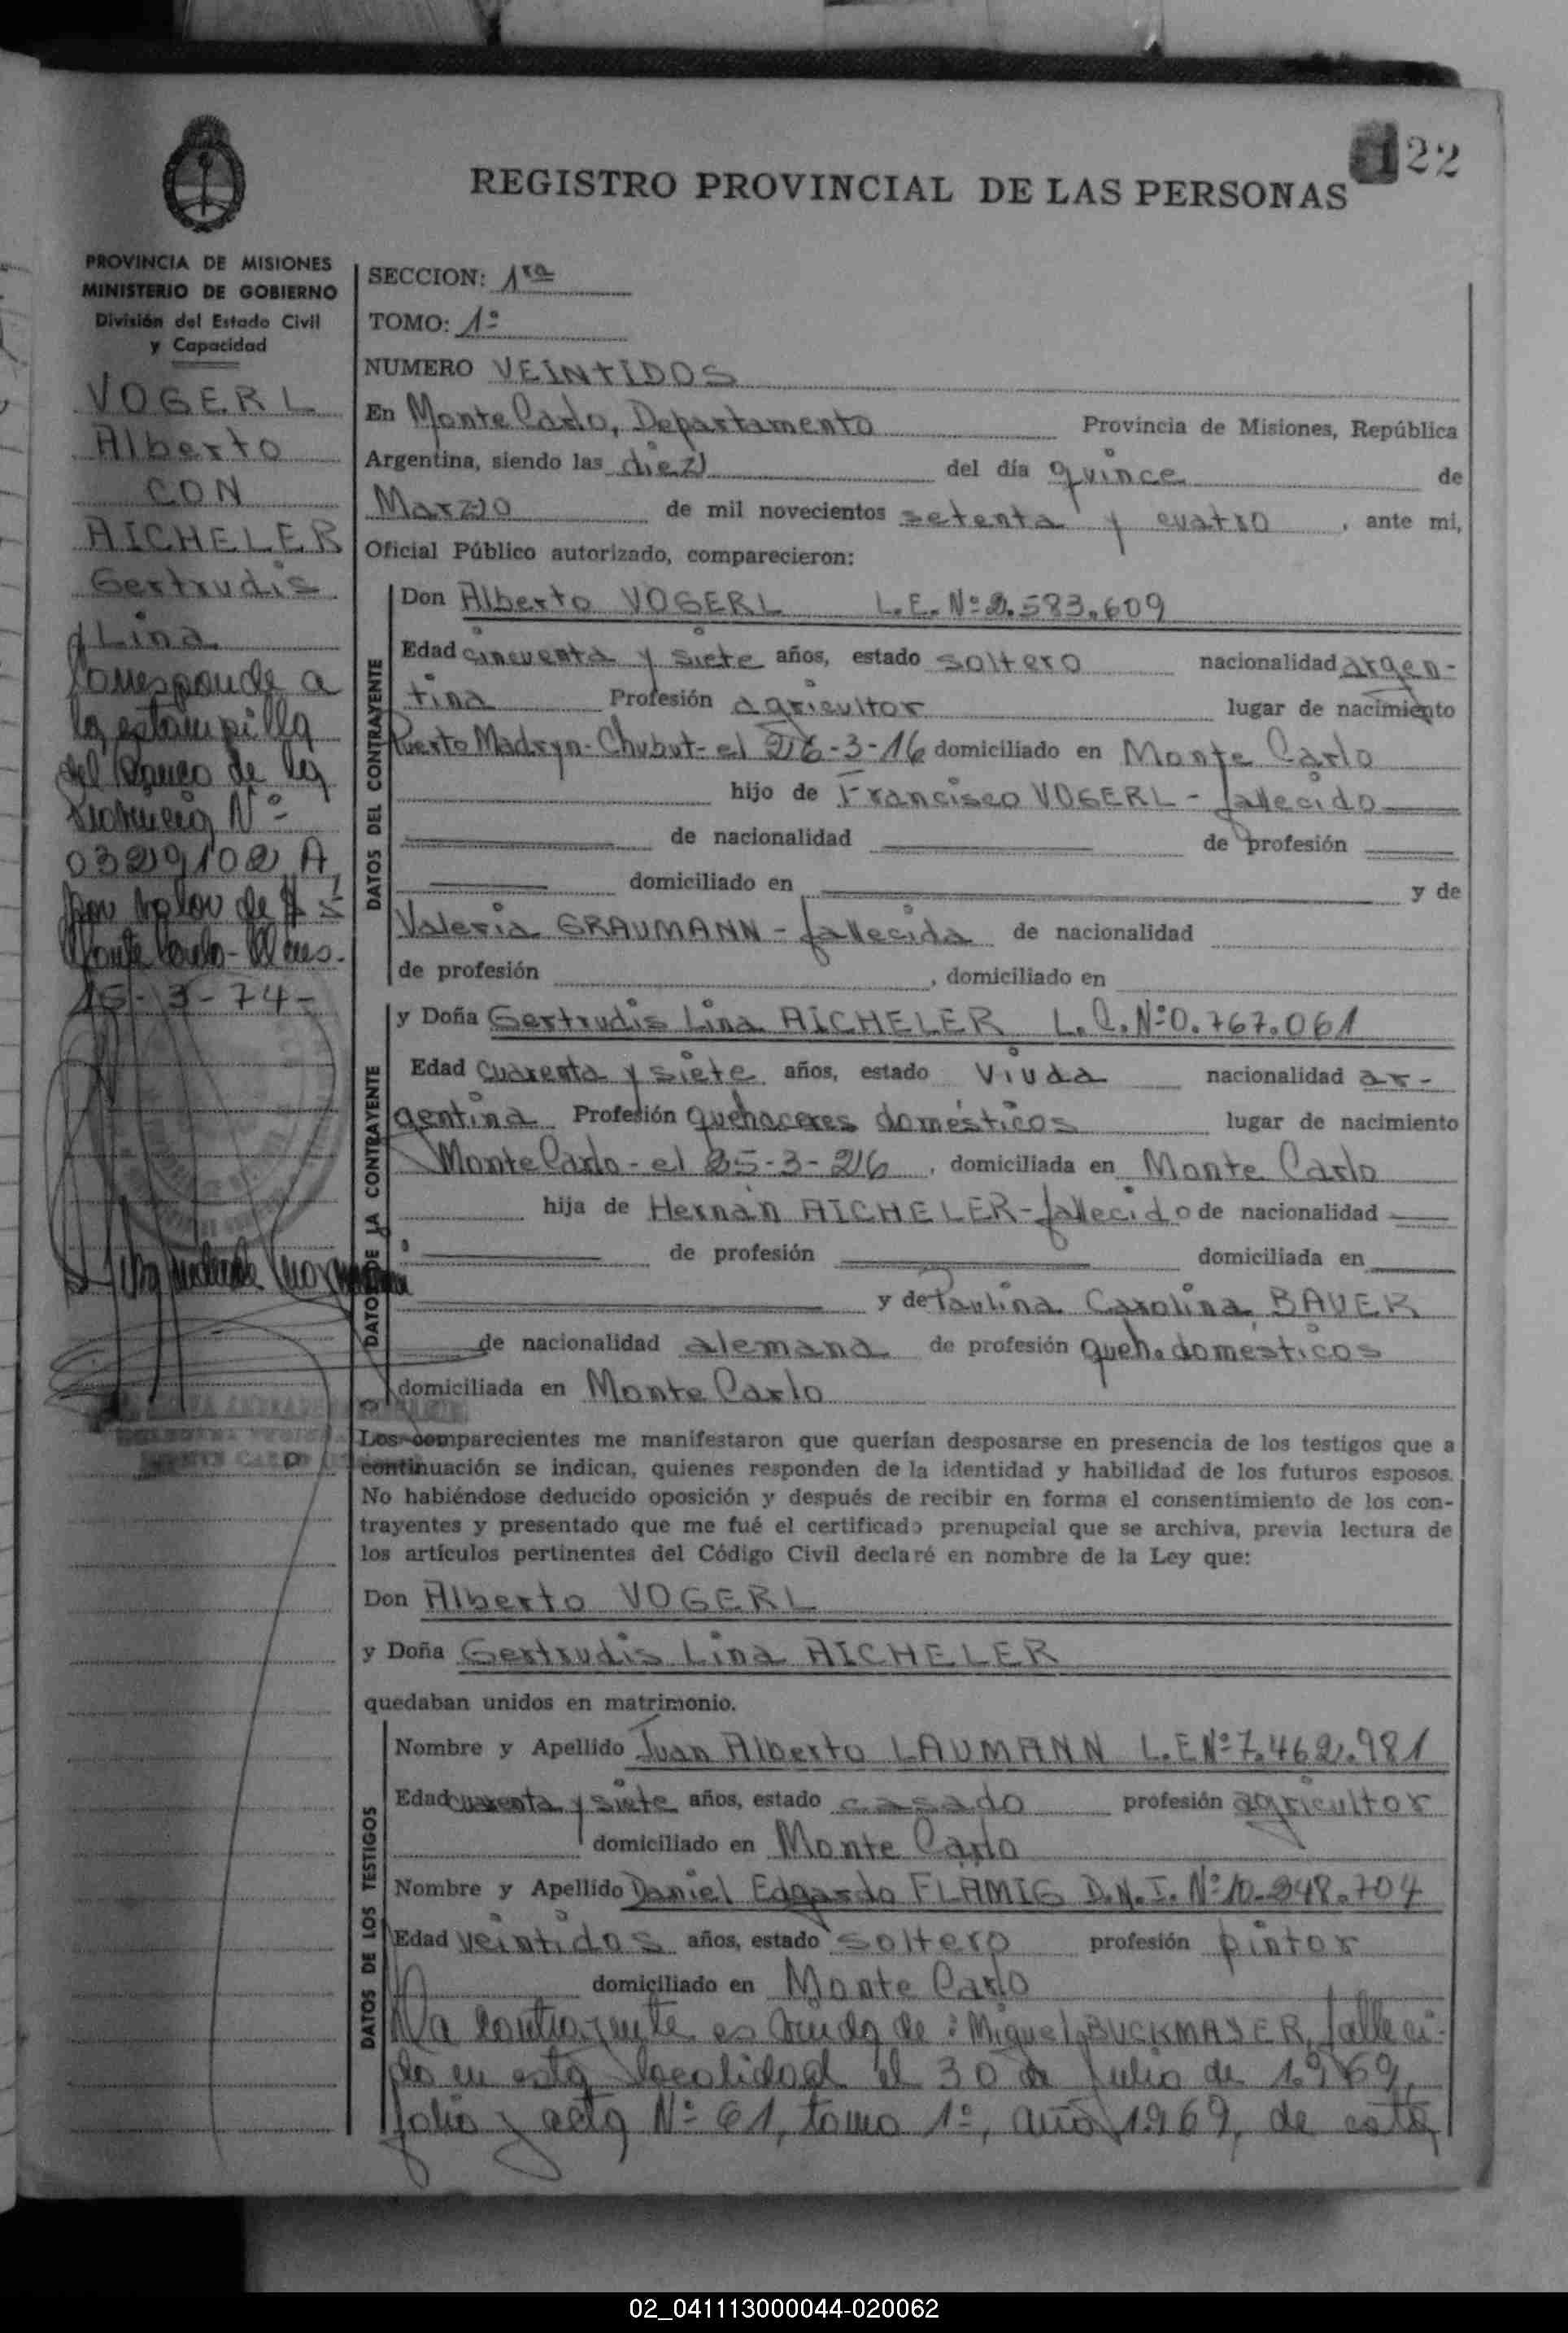 122
REGISTRO PROVINCIAL DE LAS PERSONAS
PROVINCIA DE MISIONES
MINISTERIO DE GOBIERNO
División del Estado Civil
y Capacidad
VOGERL
Alberto
CON
AICHELER
Gertrudis
Lina
Corresponde a
la estampilla
del Banco de la
Provincia Nº
0329102 A,
por valor de $ 5
Monte Carlo- Mnes.
15-3-74-
SECCION: 1ra
TOMO: 1º
NUMERO VEINTIDOS
En Monte Carlo, Departamento Provincia de Misiones, República
Argentina, siendo las diez del día quince de
Marzo de mil novecientos setenta y cuatro, ante mi,
Oficial Público autorizado, comparecieron:
DATOS DEL CONTRAYENTE
Don Alberto VOGERL L.E. Nº 2.583.609
Edad cincuenta y siete años, estado soltero nacionalidad argen-
tina Profesión agricultor lugar de nacimiento
Puerto Madryn-Chubut-el 26-3-16 domiciliado en Monte Carlo
hijo de Francisco VOGERL - fallecido
de nacionalidad de profesión
domiciliado en y de
Valeria GRAUMANN - fallecida de nacionalidad
de profesión , domiciliado en
DATOS DE LA CONTRAYENTE
y Doña Gertrudis Lina AICHELER L.C. Nº 0.767.061
Edad cuarenta y siete años, estado viuda nacionalidad ar-
gentina Profesión quehaceres domésticos lugar de nacimiento
Monte Carlo - el 25-3-26, domiciliada en Monte Carlo
hija de Hernán AICHELER-fallecido de nacionalidad
de profesión domiciliada en
y de Paulina Carolina BAUER
de nacionalidad alemana de profesión queh. domésticos
domiciliada en Monte Carlo
Los comparecientes me manifestaron que querían desposarse en presencia de los testigos que a
continuación se indican, quienes responden de la identidad y habilidad de los futuros esposos.
No habiéndose deducido oposición y después de recibir en forma el consentimiento de los con-
trayentes y presentado que me fué el certificado prenupcial que se archiva, previa lectura de
los artículos pertinentes del Código Civil declaré en nombre de la Ley que:
Don Alberto VOGERL
y Doña Gertrudis Lina AICHELER
quedaban unidos en matrimonio.
DATOS DE LOS TESTIGOS
Nombre y Apellido Juan Alberto LAUMANN L.E Nº 7.462.981
Edad cuarenta y siete años, estado casado profesión agricultor
domiciliado en Monte Carlo
Nombre y Apellido Daniel Edgardo FLAMIG D.N.I. Nº 10.248.704
Edad veintidos años, estado soltero profesión pintor
domiciliado en Monte Carlo
La contrayente es viuda de: Miguel BUCKMAYER, falleci-
do en esta localidad el 30 de Julio de 1969,
folio y acta Nº 61, tomo 1º, año 1969, de esta
02_041113000044-020062